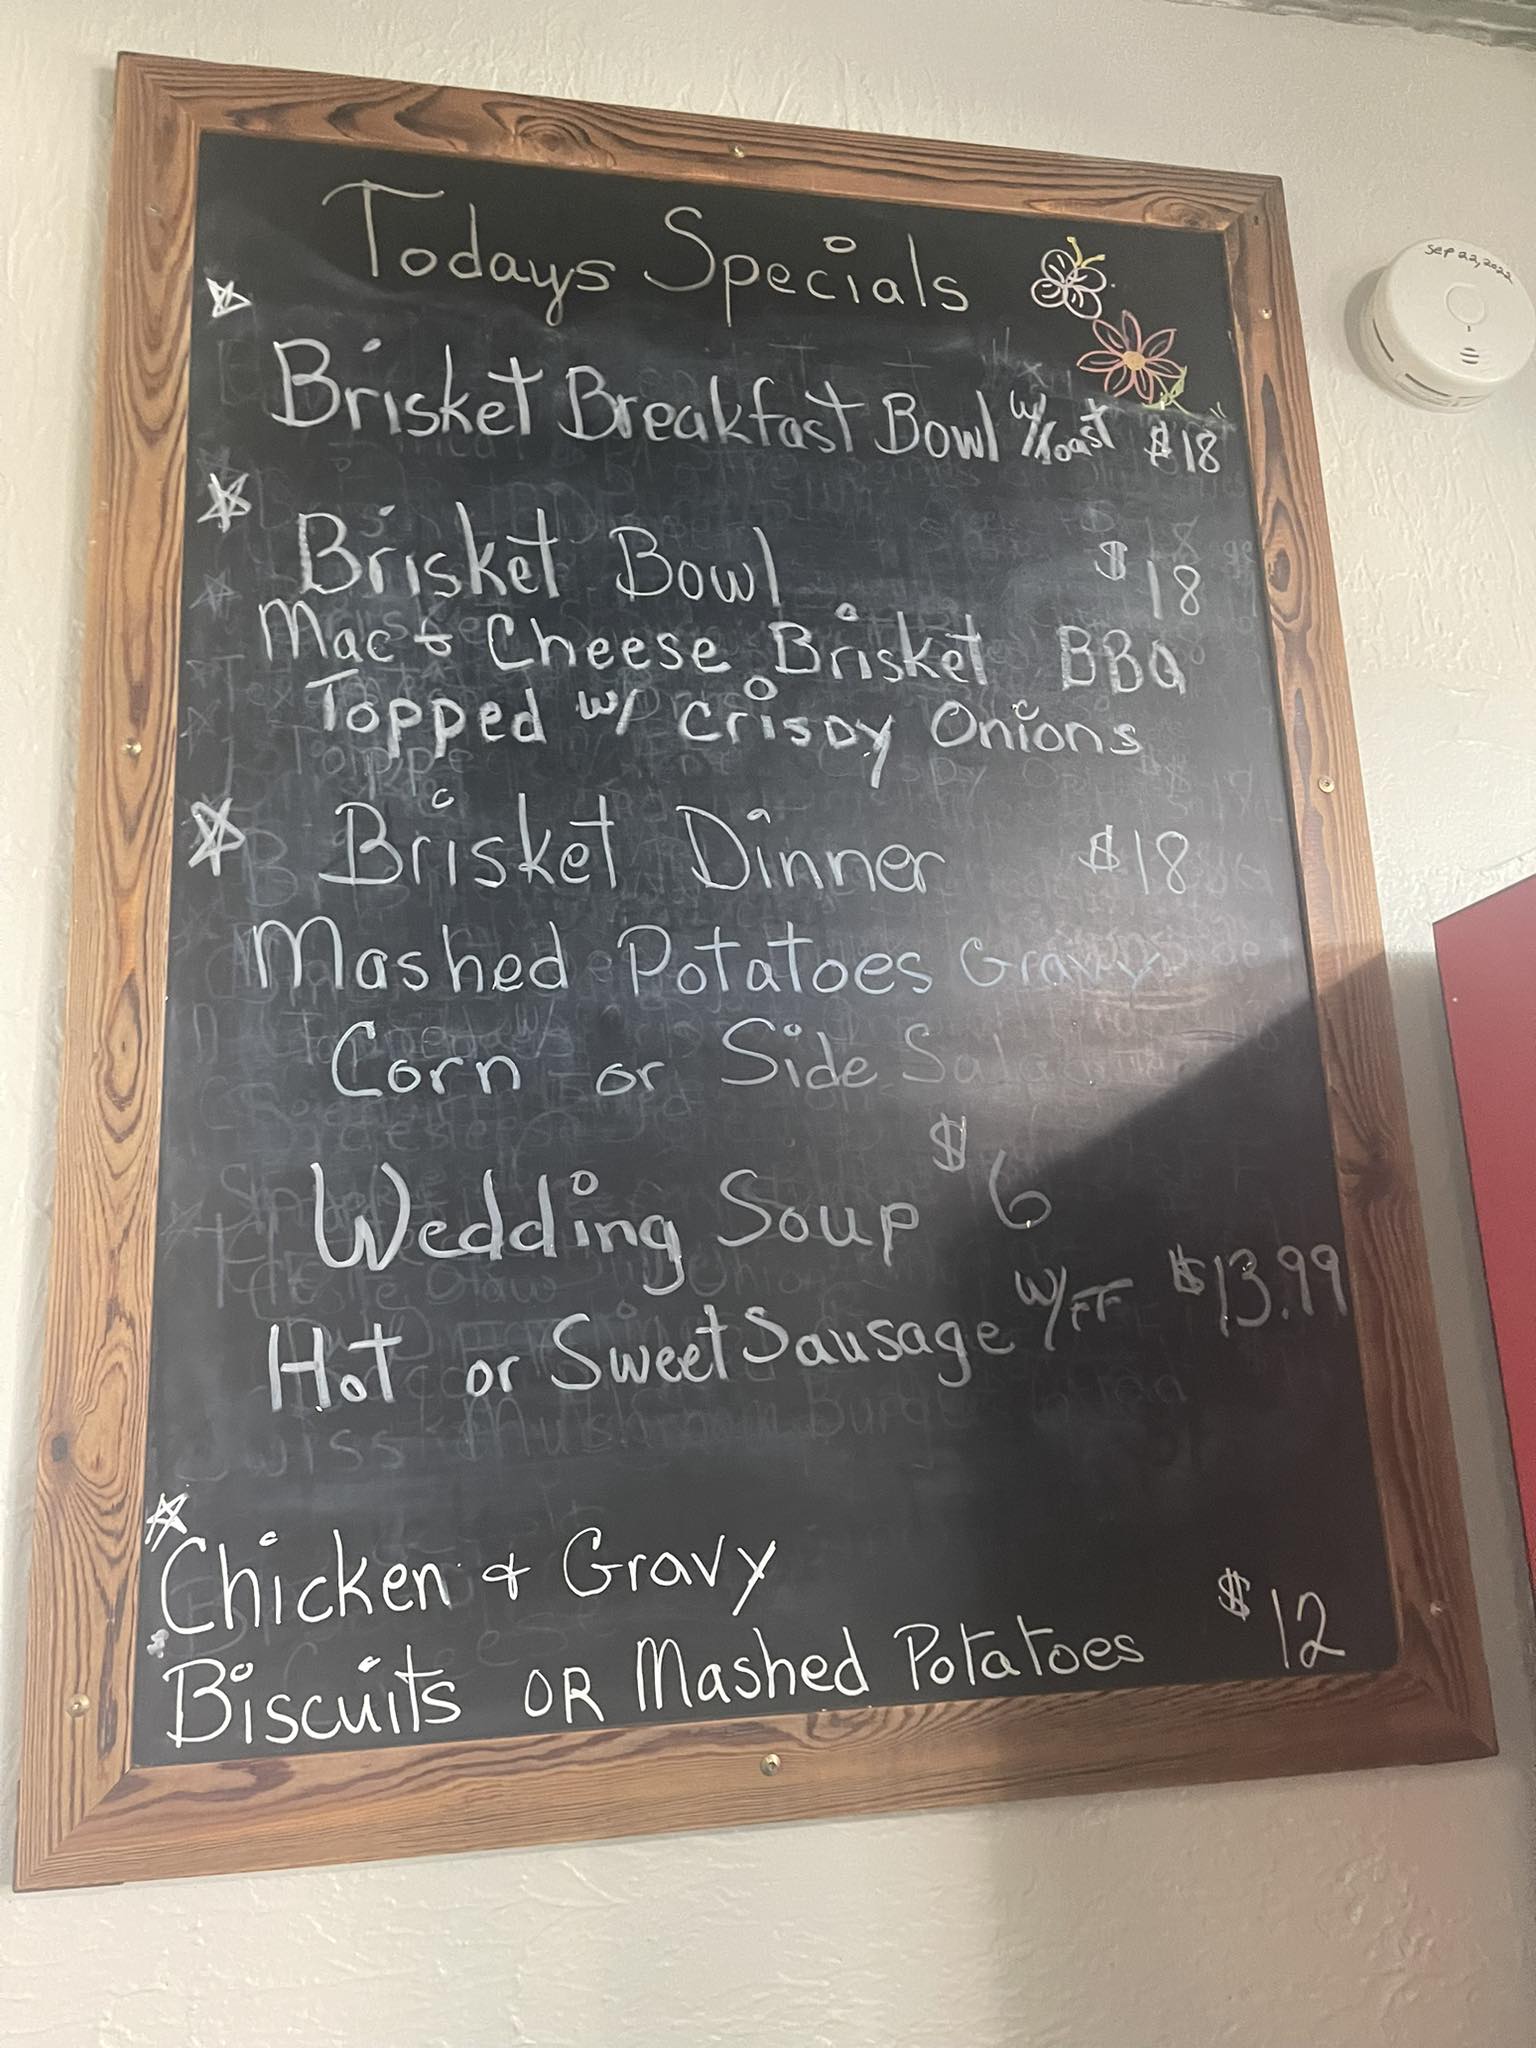 Todays Specials
Brisket Breakfast Bowl w/Toast $18
Brisket Bowl $18
Mac & Cheese Brisket BBQ
Topped w/ Crispy Onions
Brisket Dinner $18
Mashed Potatoes Gravy
Corn or Side Salad
Wedding Soup $6
Hot or Sweet Sausage w/FF $13.99
Chicken & Gravy
Biscuits OR Mashed Potatoes $12
Sep 22, 2022